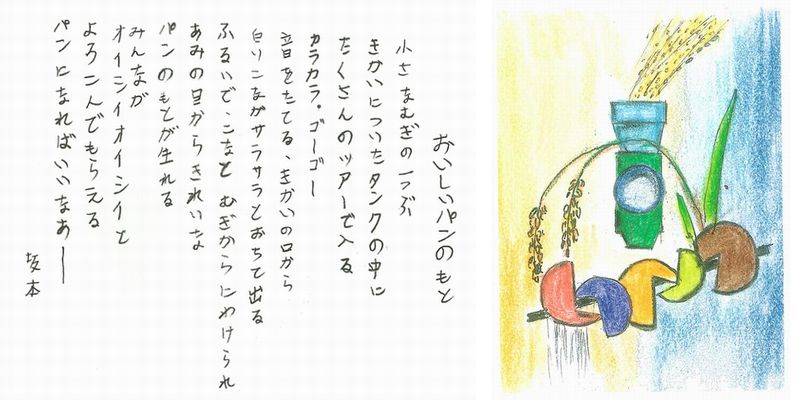 おいしいパンのもと
小さなむぎの一つぶ
きかいについたタンクの中に
たくさんのツアーで入る
カラカラ。ゴーゴー
音をたてる、きかいの口から
白いこながサラサラとおちて出る
ふるいで、こなと むぎからにわけられ
あみの目からきれいな
パンのもとが生れる
みんなが
オイシイオイシイと
よろこんでもらえる
パンになればいいなあー
坂本